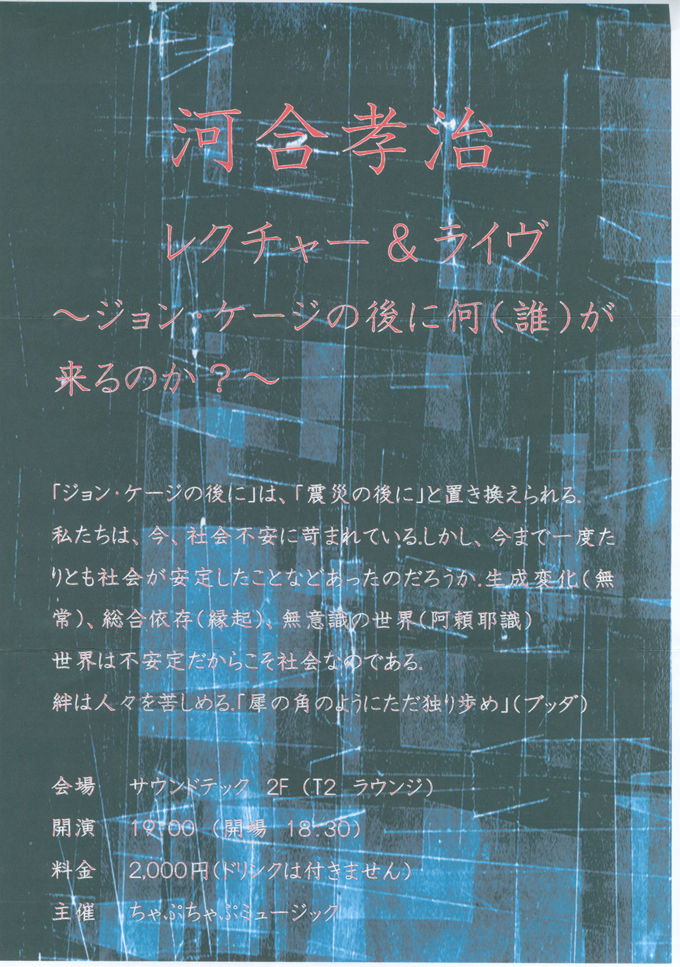 河合孝治
レクチャー & ライヴ
～ジョン・ケージの後に何(誰)が
来るのか?～
「ジョン・ケージの後に」は、「震災の後に」と置き換えられる.
私たちは、今、社会不安に苛まれている.しかし、今まで一度た
りとも社会が安定したことなどあったのだろうか.生成変化(無
常)、総合依存(縁起)、無意識の世界(阿頼耶識)
世界は不安定だからこそ社会なのである.
絆は人々を苦しめる.「犀の角のようにただ独り歩め」(ブッダ)
会場 サウンドテック 2F (T2 ラウンジ)
開演 19:00 (開場 18:30)
料金 2,000円(ドリンクは付きません)
主催 ちゃぷちゃぷミュージック